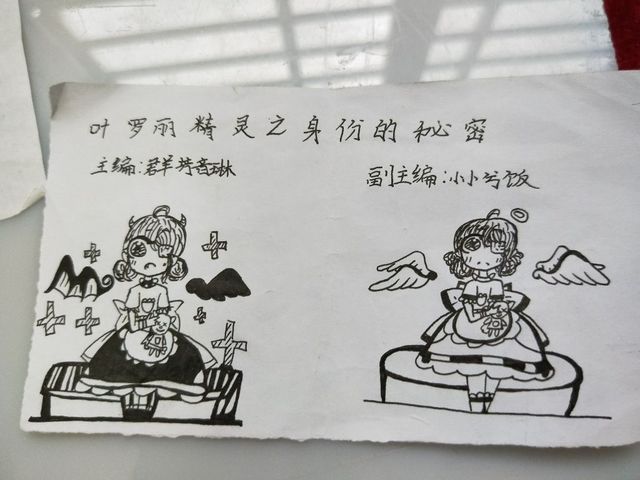 叶罗丽精灵之身份的秘密
主编:群芳音琳
副主编:小小兮饭